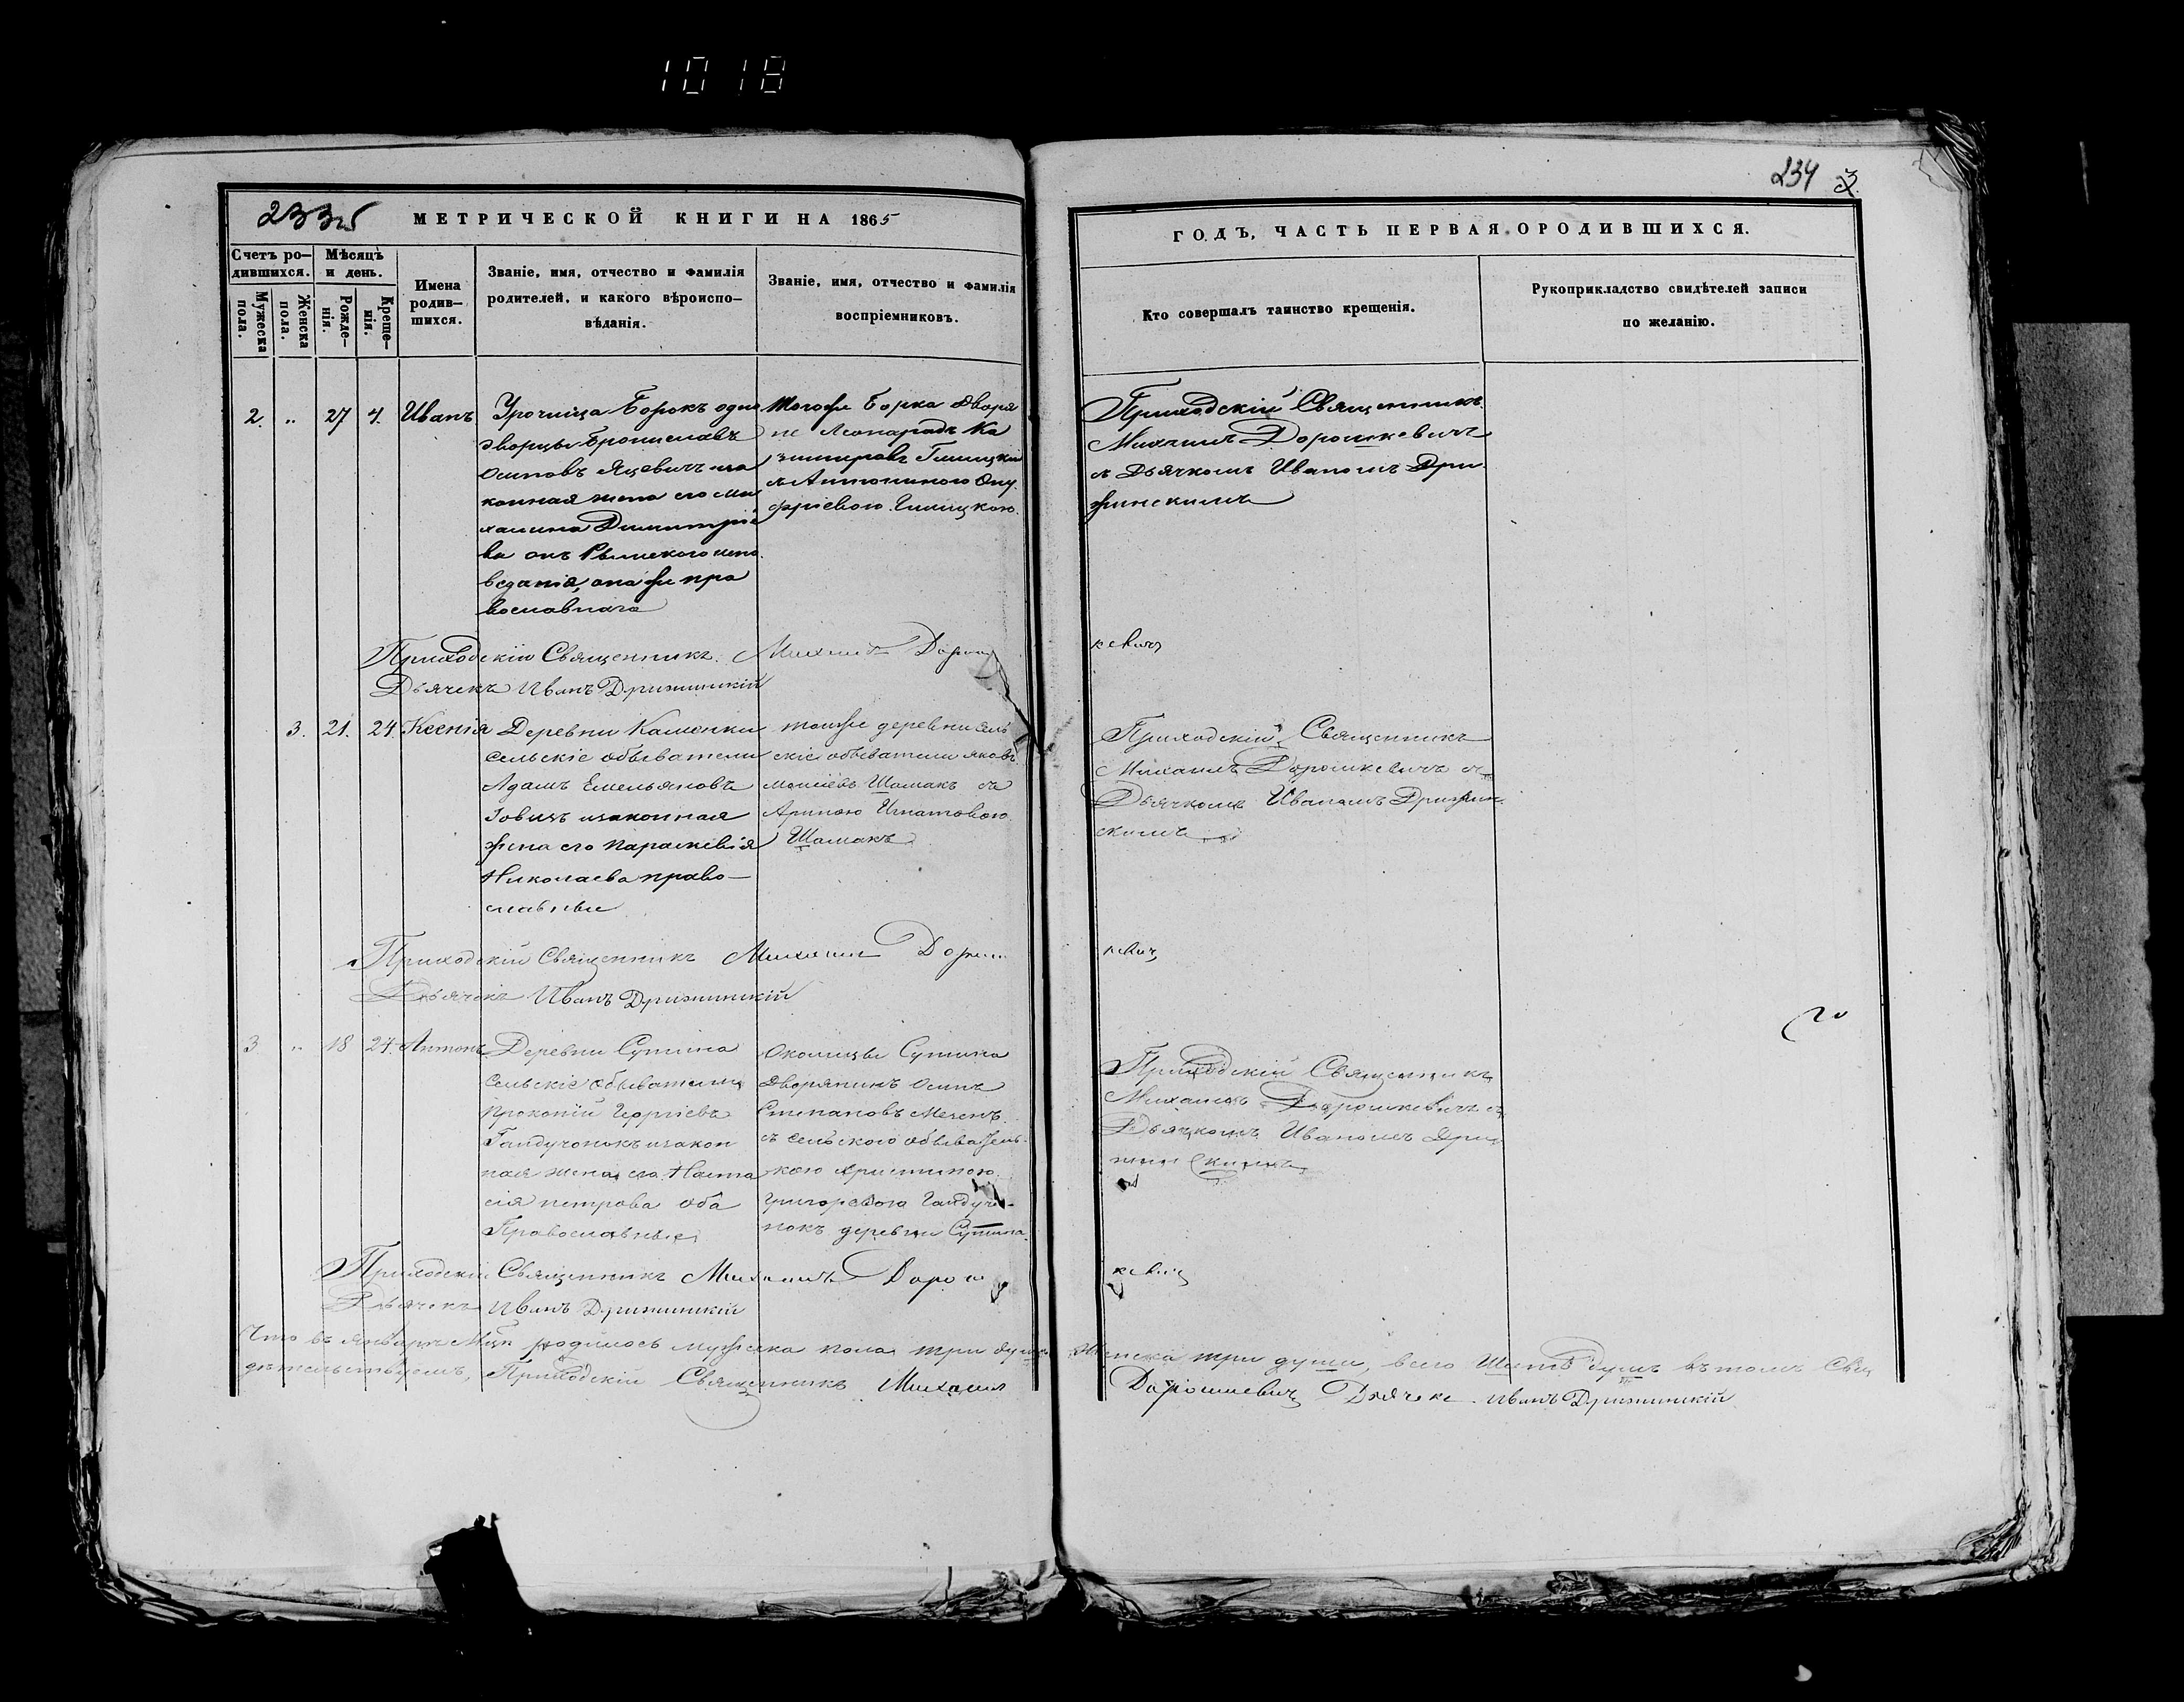 1018
234
233об
МЕТРИЧЕСКОЙ КНИГИ НА 1865
ГОДЪ, ЧАСТЬ ПЕРВАЯ. О РОДИВШИХСЯ.
Счетъ ро-
дившихся.
Мужеска
пола.
Женска
пола.
Мѣсяцъ
и день.
Рожде-
нія.
Креще-
нія.
Имена
родив-
шихся.
Званіе, имя, отчество и фамилія
родителей, и какого вѣроиспо-
вѣданія.
Званіе, имя, отчество и фамилія
воспріемниковъ.
Кто совершалъ таинство крещенія.
Рукоприкладство свидѣтелей записи
по желанію.
2. „ 27 4. Иванъ
Урочища Борокъ одно
дворцы Брониславъ
Осиповъ Яцевичъ иза
конная жена его Ми
халина Димитріе
ва онъ Рымского испо
веданія, она же пра
вославнаго
Тогоже Борка Дворя
не Леонардъ Ка
зимировъ
съ Антониною Ону
фріевою
Приходскій Священникъ
Михаилъ Дорошкевичъ
съ Дьячкомъ Иваномъ Дри
жинскимъ
Приходскій Священникъ Михаилъ Дорош
кевичъ
Дьячекъ Иванъ Дрижинскій
3. 21. 24. Ксенія
Деревни Каменки
сельскіе обыватели
Адамъ Емельяновъ
изаконная
жена его Параскевія
Николаева право-
славные
тоиже деревни сель
скіе обыватели Яковъ
Шамакъ съ
Ариною Игнатовою
Шамакъ
Приходскій Священникъ
Михаилъ Дорошкевичъ съ
Дьячкомъ Иваномъ Дрижин
скимъ
Приходскій Священникъ Михаилъ Дорош
кевичъ
Дьячекъ Иванъ Дрижинскій
3 „ 18 24. Антонъ
Деревни Сутина
Сельскіе обыватели
Прокопій Георгіевъ
Гайдучонокъ изакон
ная жена его Наста
сія петрова оба
Православные
Околицы Сутина
Дворянинъ Осипъ
Степановъ
съ сельского обыватель
кою Христиною
Григорьевою Гайдучо-
нокъ деревни Сутина
Приходскій Священникъ
Михаилъ Дорошкевичъ съ
Дьячкомъ Иваномъ Дри
жинскимъ
Приходскій Священникъ Михаилъ Дорош
кевичъ
Дьячекъ Иванъ Дрижинскій
Что въ Январѣ Мцѣ родилось мужеска пола три души Женска три души, всего Шесть душъ въ томъ Сви
дѣтельствуемъ, Приходскій Священникъ Михаилъ Дорошкевичъ Дьячекъ Иванъ Дрижинскій